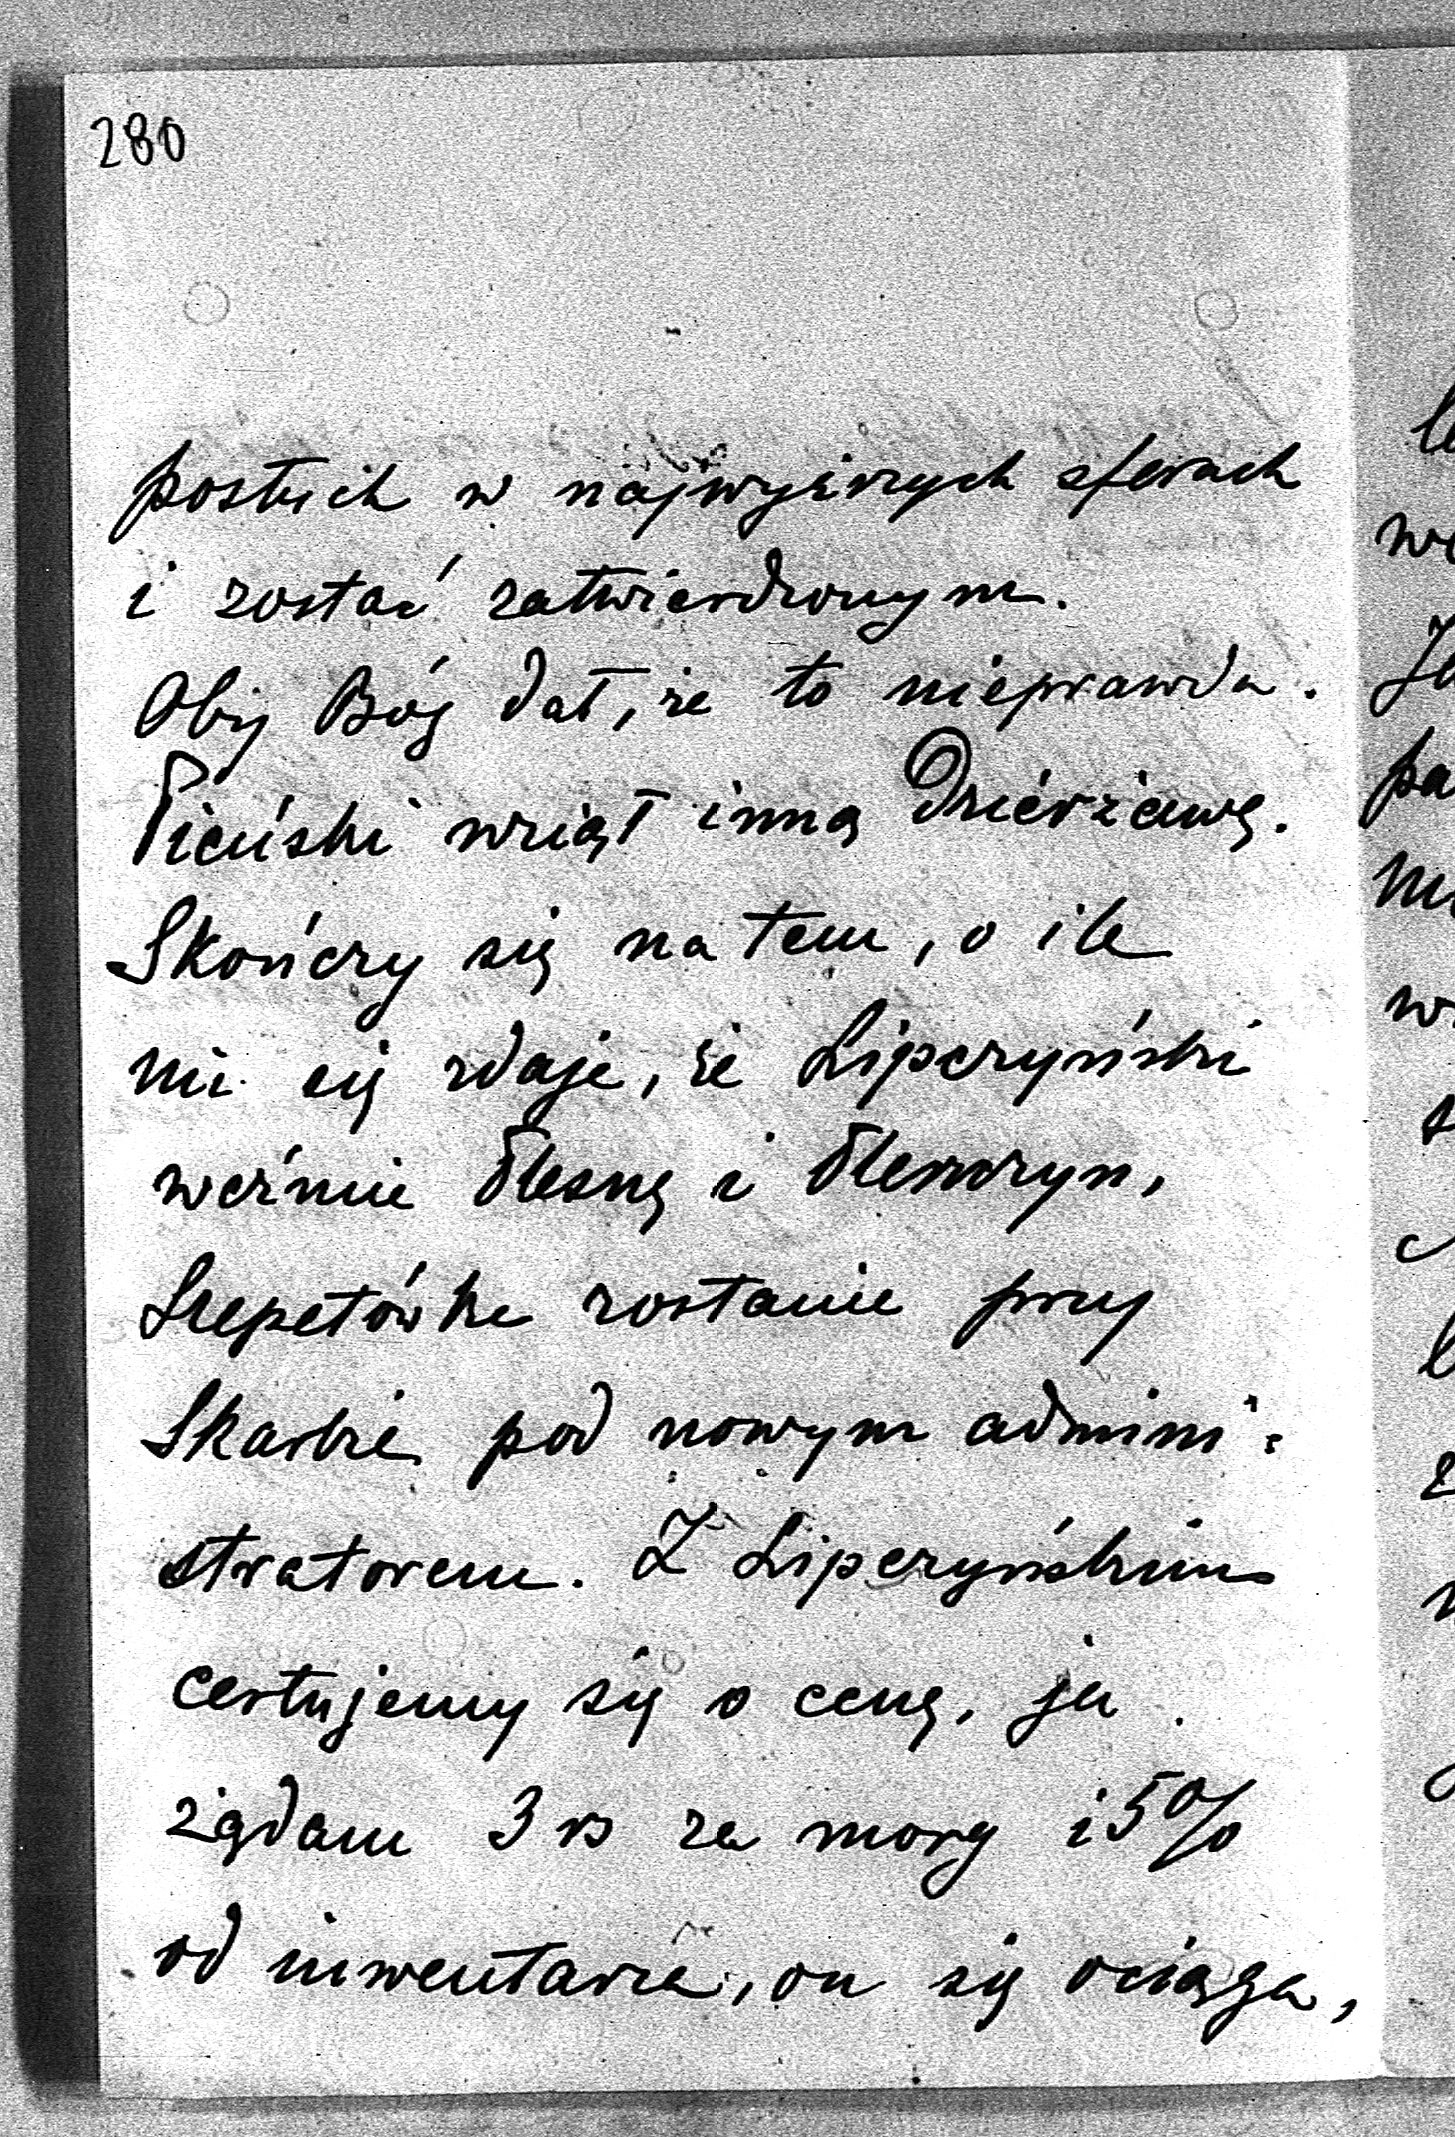 280
posłuch w najwyższych sferach
i zostać zatwierdzonym.
Oby Bóg dał, że to nieprawda.
wziął inną Dzierżawę.
Skończy się na tem, o ile
mi się zdaje, że Lipczyński
weźmie Olesnę i
Szepetówka zostanie przy
Skarbie pod nowym admini=
stratorem. Z Lipczyńskim
certujemy się o cenę, ja
żądam 3 rs za morg i 5%
od inwentarza, on się ociąga,